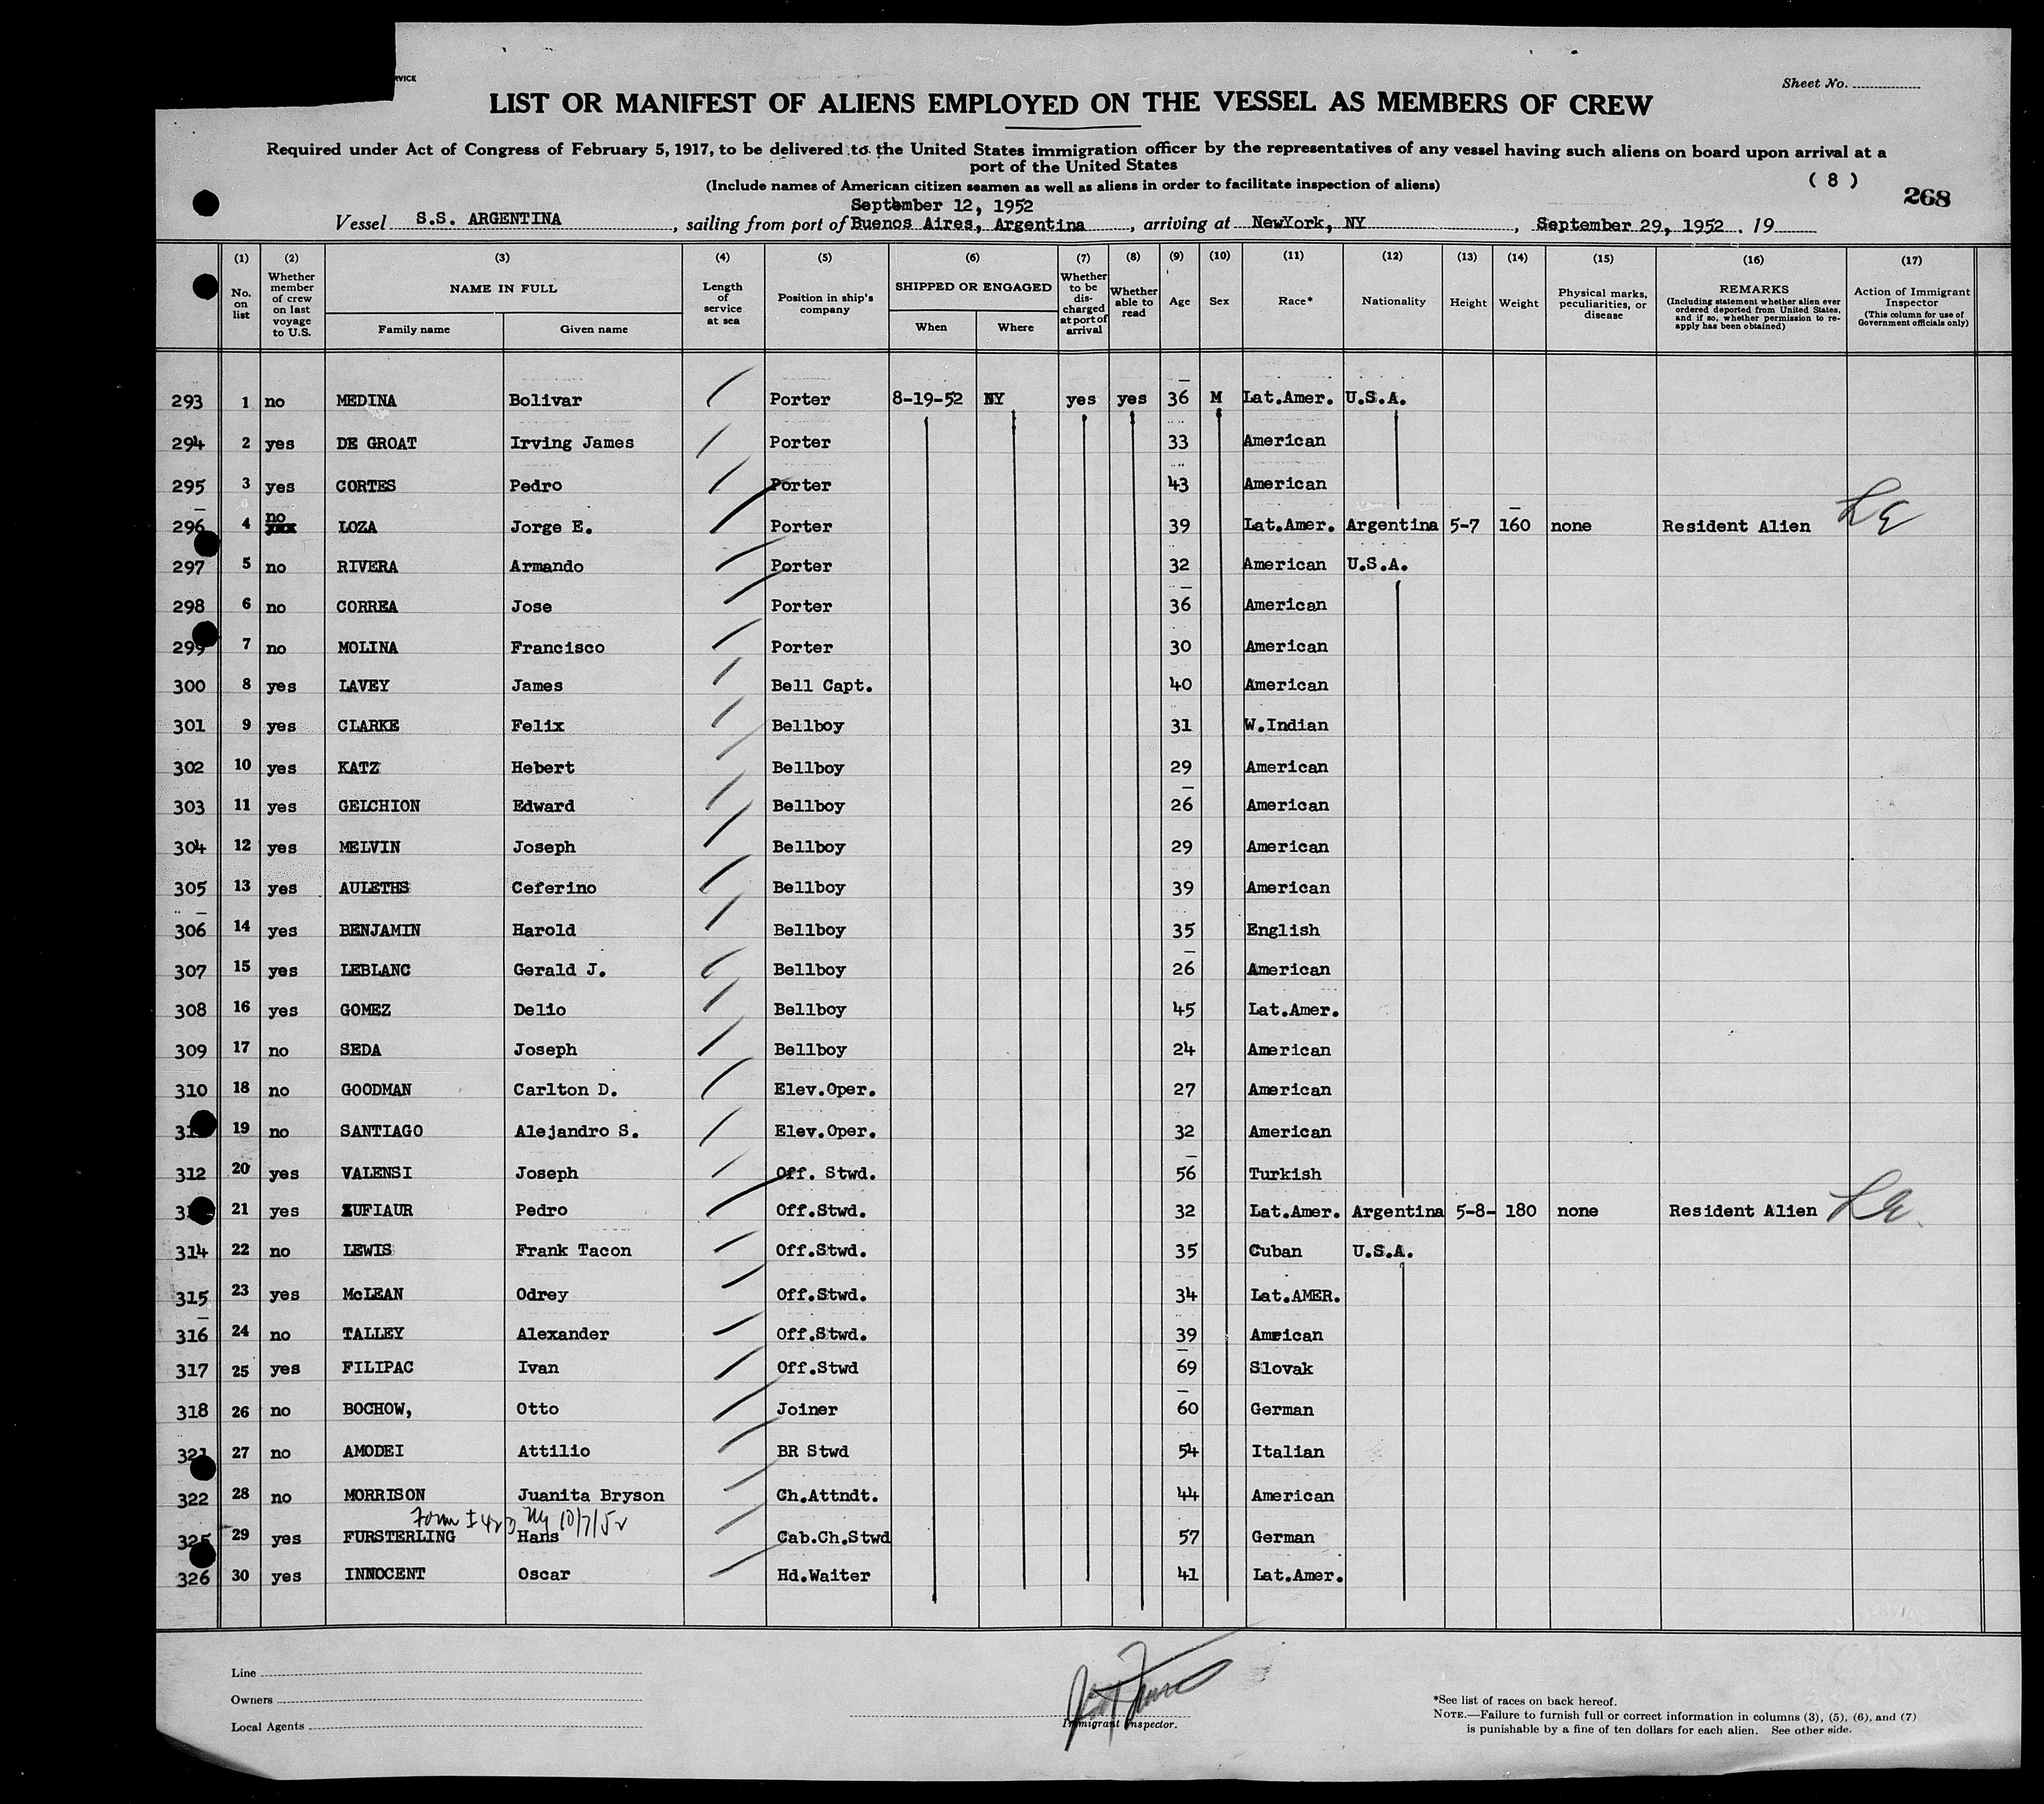 RVICE
Sheet No.
LIST OR MANIFEST OF ALIENS EMPLOYED ON THE VESSEL AS MEMBERS OF CREW
Required under Act of Congress of February 5, 1917, to be delivered to the United States immigration officer by the representatives of any vessel having such aliens on board upon arrival at a
port of the United States
(Include names of American citizen seamen as well as aliens in order to facilitate inspection of aliens)
( 8 )
268
September 12, 1952
Vessel S.S. ARGENTINA, sailing from port of Buenos Aires, Argentina, arriving at NewYork, NY, September 29, 1952. 19
(1) No. on list
(2) Whether member of crew on last voyage to U.S.
(3) NAME IN FULL Family name Given name
(4) Length of service at sea
(5) Position in ship's company
(6) SHIPPED OR ENGAGED When Where
(7) Whether to be dis-charged at port of arrival
(8) Whether able to read
(9) Age
(10) Sex
(11) Race*
(12) Nationality
(13) Height
(14) Weight
(15) Physical marks, peculiarities, or disease
(16) REMARKS (Including statement whether alien ever ordered deported from United States, and if so, whether permission to re-apply has been obtained)
(17) Action of Immigrant Inspector (This column for use of Government officials only)
293 1 no MEDINA Bolivar Porter 8-19-52 NY yes yes 36 M Lat.Amer. U.S.A.
294 2 yes DE GROAT Irving James Porter 33 American
295 3 yes CORTES Pedro Porter 43 American
296 4 no LOZA Jorge E. Porter 39 Lat.Amer. Argentina 5-7 160 none Resident Alien
297 5 no RIVERA Armando Porter 32 American U.S.A.
298 6 no CORREA Jose Porter 36 American
299 7 no MOLINA Francisco Porter 30 American
300 8 yes LAVEY James Bell Capt. 40 American
301 9 yes CLARKE Felix Bellboy 31 W.Indian
302 10 yes KATZ Hebert Bellboy 29 American
303 11 yes GELCHION Edward Bellboy 26 American
304 12 yes MELVIN Joseph Bellboy 29 American
305 13 yes AULETHS Ceferino Bellboy 39 American
306 14 yes BENJAMIN Harold Bellboy 35 English
307 15 yes LEBLANC Gerald J. Bellboy 26 American
308 16 yes GOMEZ Delio Bellboy 45 Lat.Amer.
309 17 no SEDA Joseph Bellboy 24 American
310 18 no GOODMAN Carlton D. Elev.Oper. 27 American
19 no SANTIAGO Alejandro S. Elev.Oper. 32 American
312 20 yes VALENSI Joseph Off. Stwd. 56 Turkish
21 yes ZUFIAUR Pedro Off.Stwd. 32 Lat.Amer. Argentina 5-8- 180 none Resident Alien
314 22 no LEWIS Frank Tacon Off.Stwd. 35 Cuban U.S.A.
315 23 yes McLEAN Odrey Off.Stwd. 34 Lat.AMER.
316 24 no TALLEY Alexander Off.Stwd. 39 Amrican
317 25 yes FILIPAC Ivan Off.Stwd 69 Slovak
318 26 no BOCHOW, Otto Joiner 60 German
321 27 no AMODEI Attilio BR Stwd 54 Italian
322 28 no MORRISON Juanita Bryson Ch.Attndt. 44 American
Form I 10/7/52
325 29 yes FURSTERLING Hans Cab.Ch.Stwd 57 German
326 30 yes INNOCENT Oscar Hd.Waiter 41 Lat.Amer.
Line
Owners
Local Agents
Immigrant Inspector.
*See list of races on back hereof.
NOTE.—Failure to furnish full or correct information in columns (3), (5), (6), and (7)
is punishable by a fine of ten dollars for each alien. See other side.